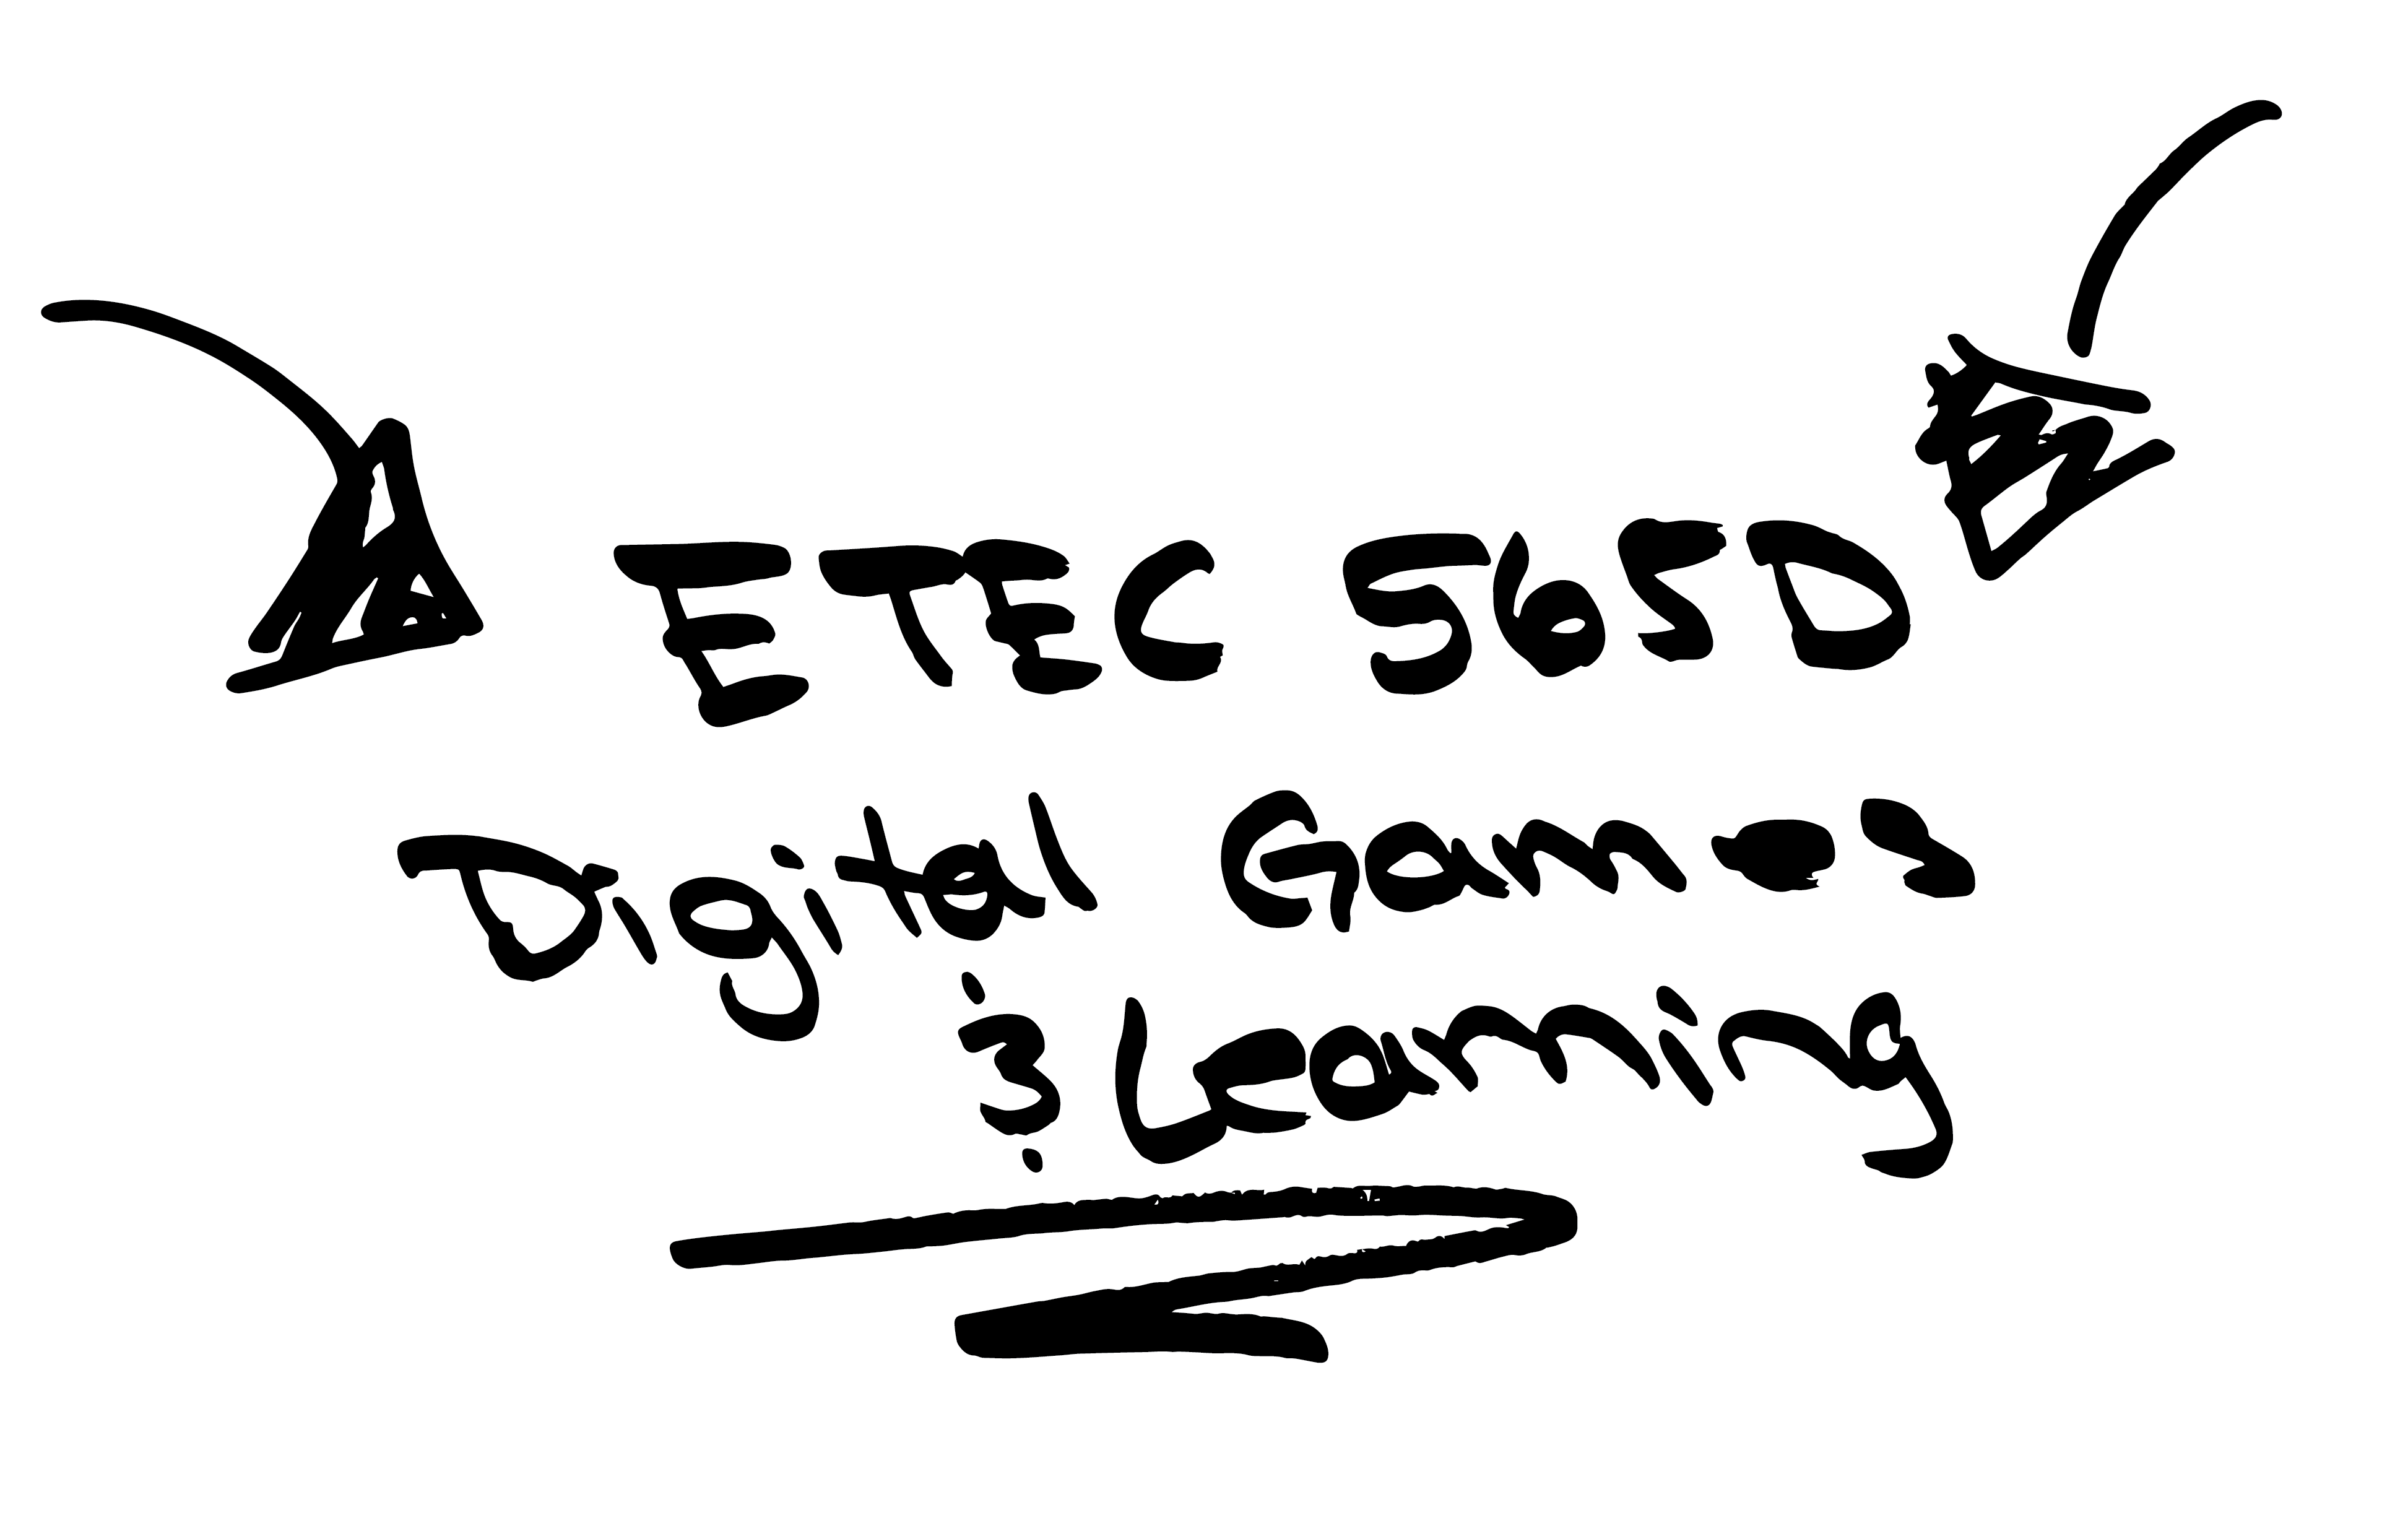 ETEC 565D
Digital Games
& Learning